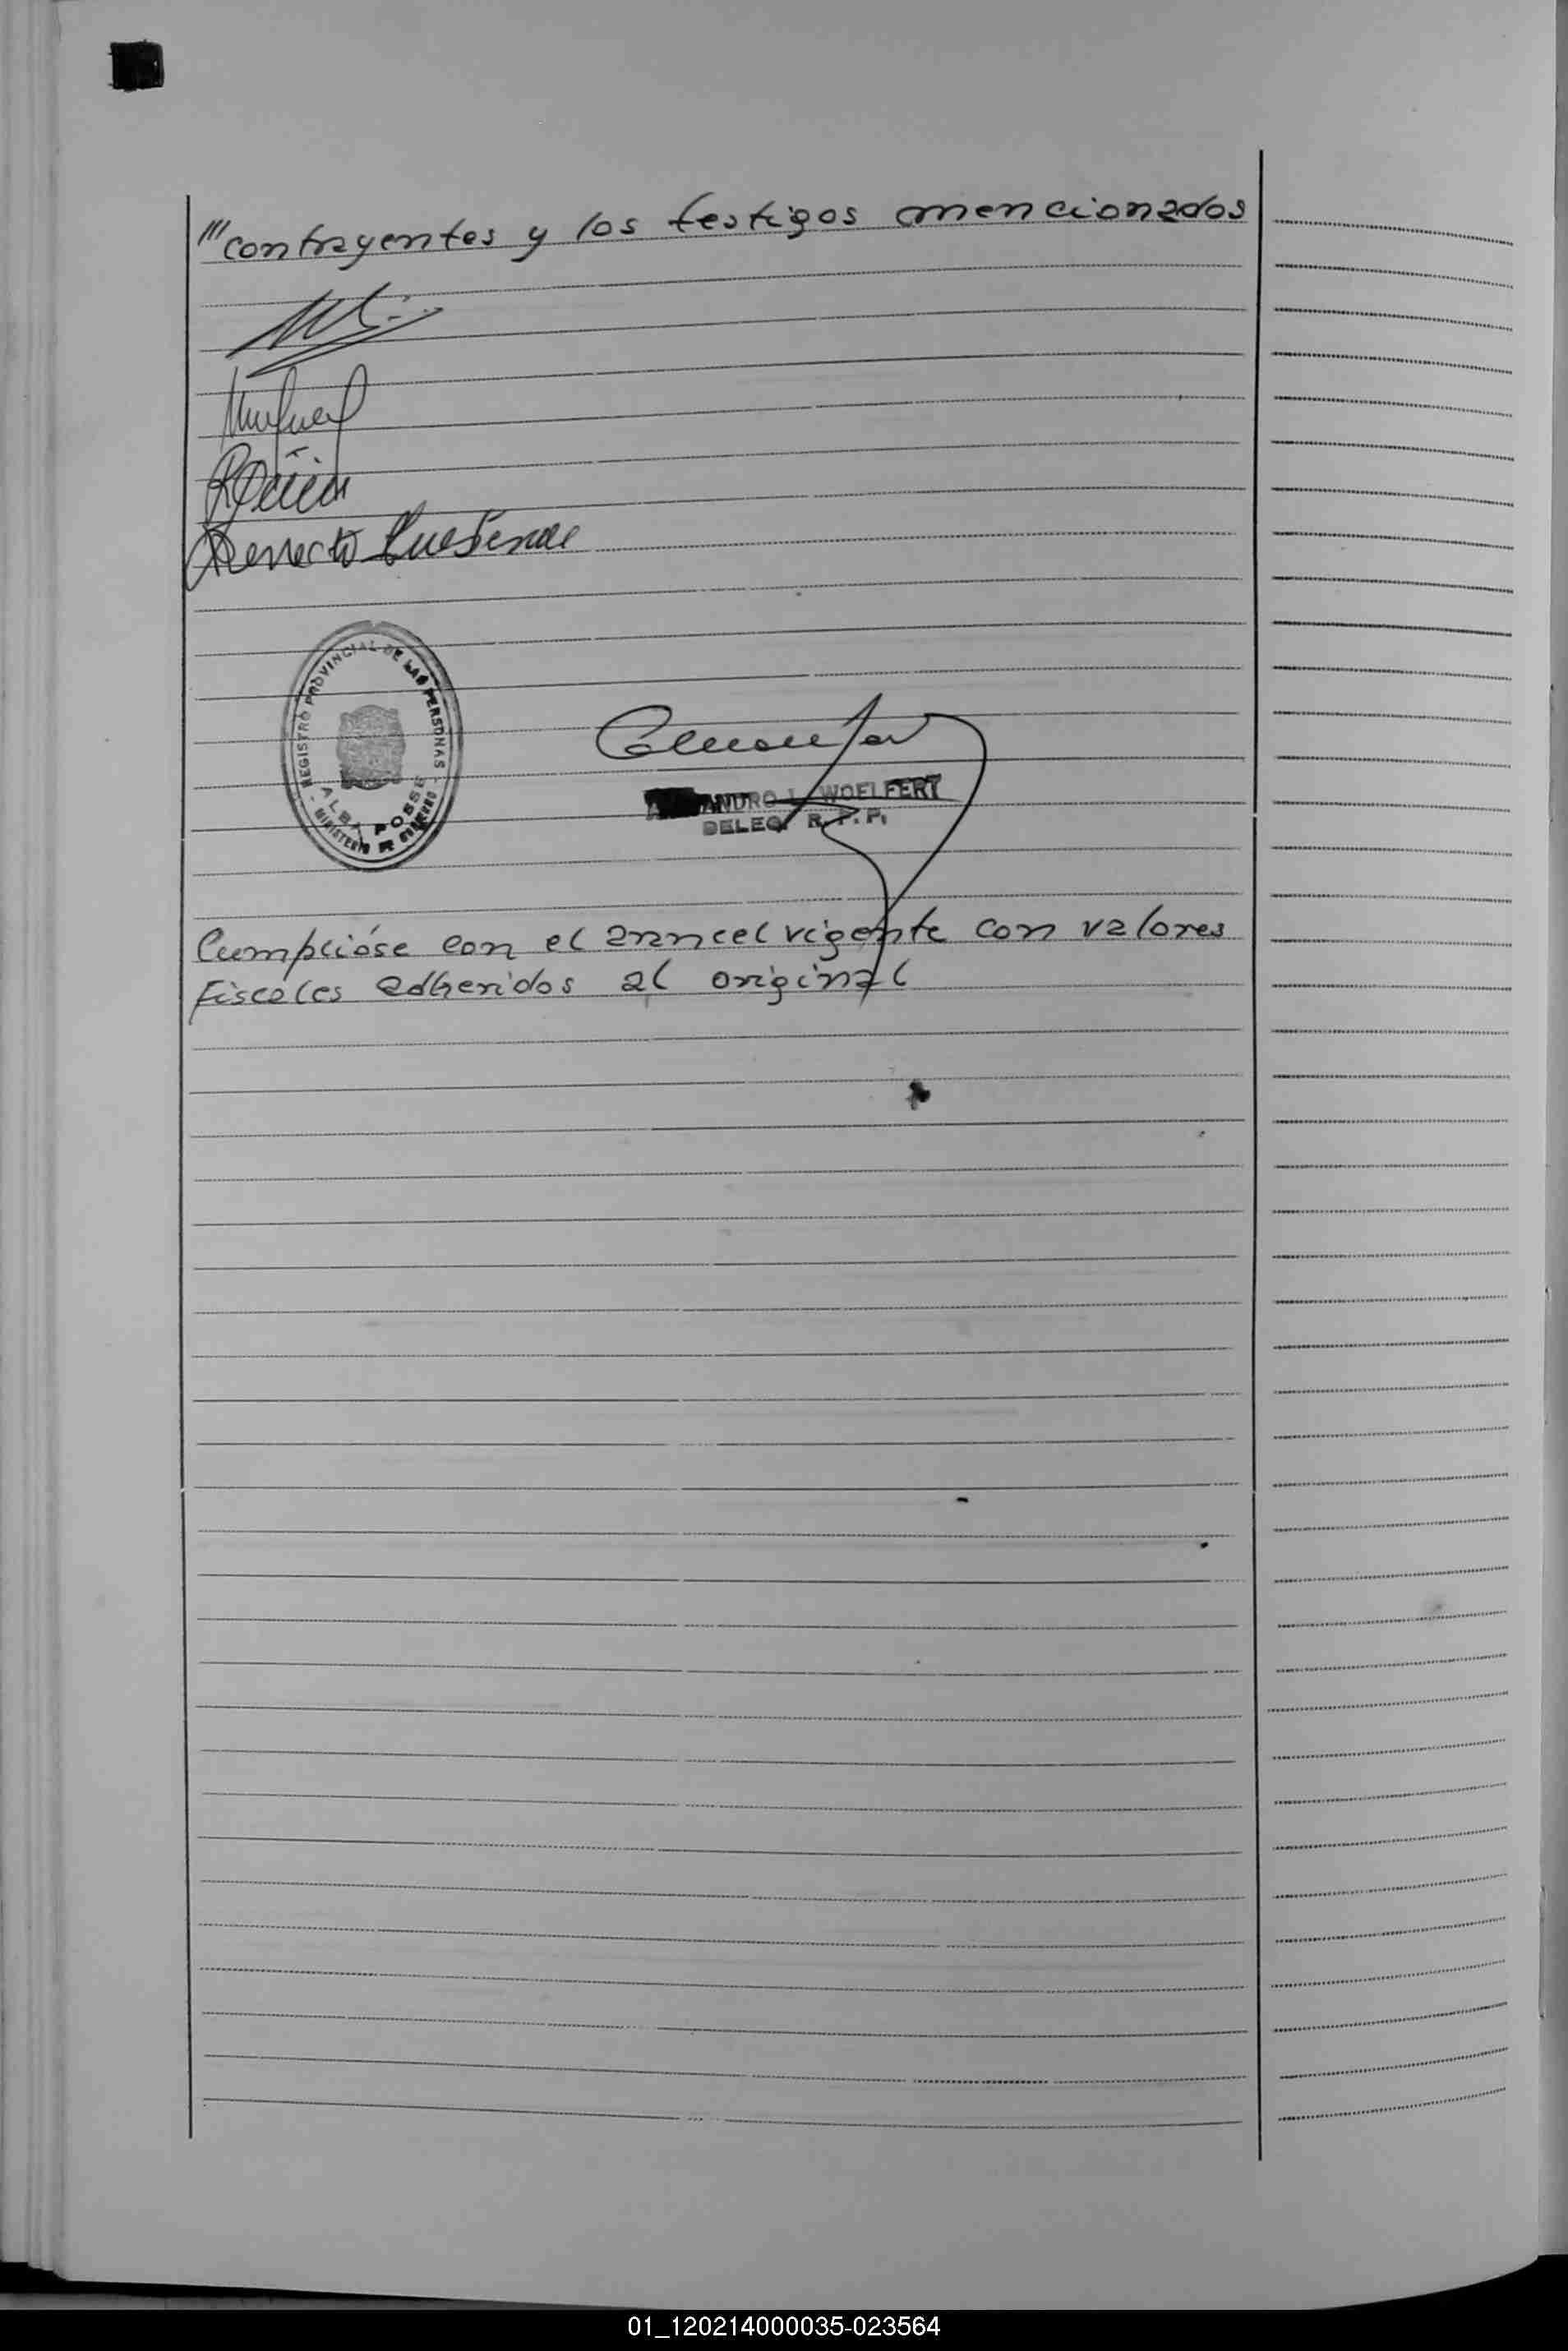 ///contrayentes y los testigos mencionados
REGISTRO PROVINCIAL DE LAS PERSONAS
ALBA POSSE
- MINISTERIO DE GOBIERNO -
ANDRO L. WOELFERT
DELEG. R. P. P.
Cumplióse con el arancel vigente con valores
fiscales adheridos al original
01_120214000035-023564